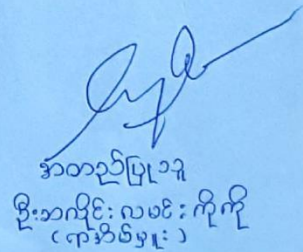 အတည်ပြုသူ
ဦးဘလှိုင်းလမင်းကိုကို
(ရာအိမ်မှူး)